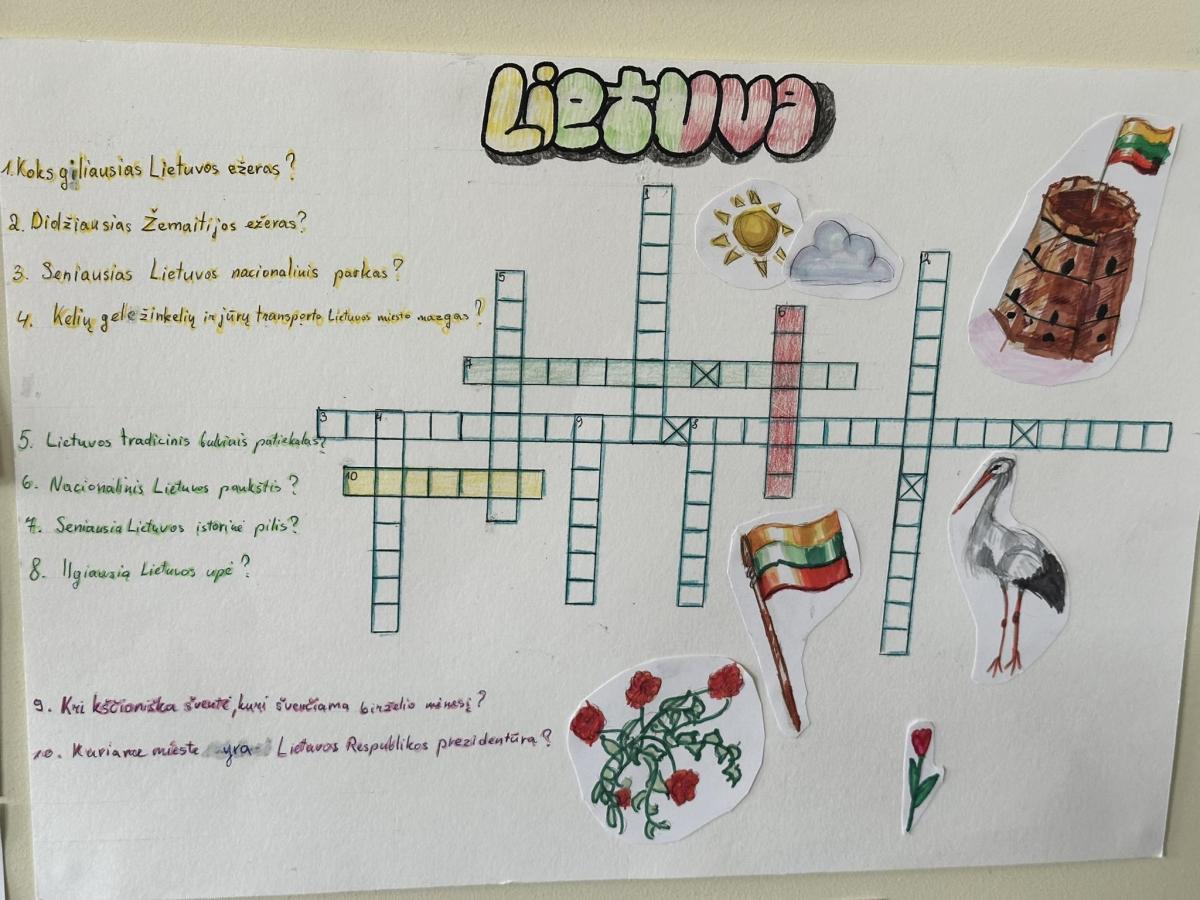 Lietuva
1. Koks giliausias Lietuvos ežeras?
2. Didžiausias Žemaitijos ežeras?
3. Seniausias Lietuvos nacionalinis parkas?
4. Kelių geležinkelių ir jūrų transporto Lietuvos miesto mazgas?
5. Lietuvos tradicinis bulviais patiekalas?
6. Nacionalinis Lietuvos paukštis?
7. Seniausia Lietuvos istorinė pilis?
8. Ilgiausią Lietuvos upė?
9. Kri kščioniška šventė, kuri švenčiama birželio mėnesį?
10. Kuriame mieste yra Lietuvos Respublikos prezidentūra?
1
2
5
6
7
3 4 9 8
10